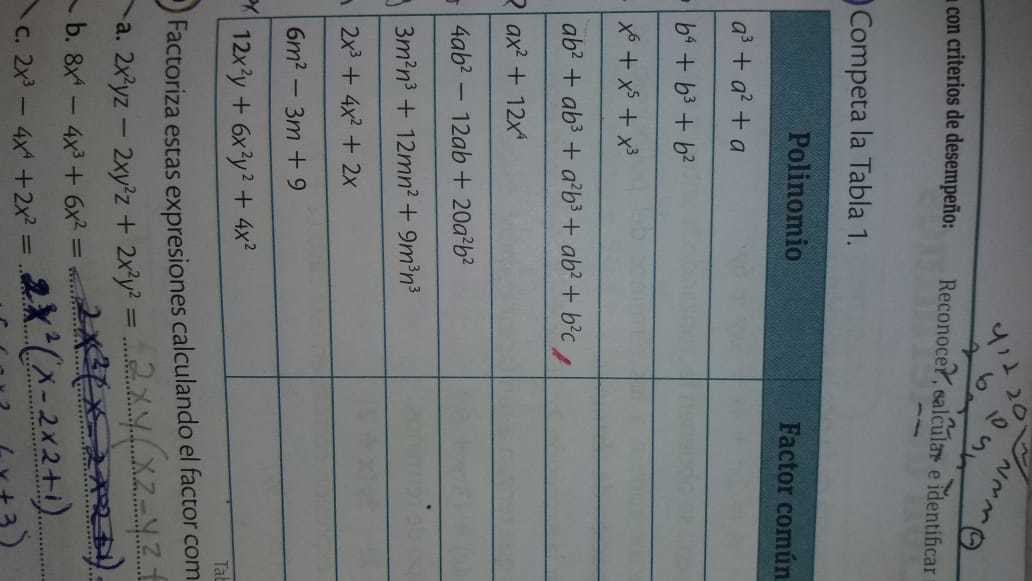 con criterios de desempeño: Reconocer, calcular e identificar
Competa la Tabla 1.
Polinomio Factor común
a³ + a² + a
b⁴ + b³ + b²
x⁶ + x⁵ + x³
ab² + ab³ + a²b³ + ab² + b²c
ax² + 12x⁴
4ab² − 12ab + 20a²b²
3m²n³ + 12mn² + 9m³n³
2x³ + 4x² + 2x
6m² − 3m + 9
12x²y + 6x²y² + 4x²
Factoriza estas expresiones calculando el factor com
a. 2x²yz − 2xy²z + 2x²y² = 2xy(xz − yz +
b. 8x⁴ − 4x³ + 6x² =
c. 2x³ − 4x⁴ + 2x² = 2x²(x − 2x2 + 1)